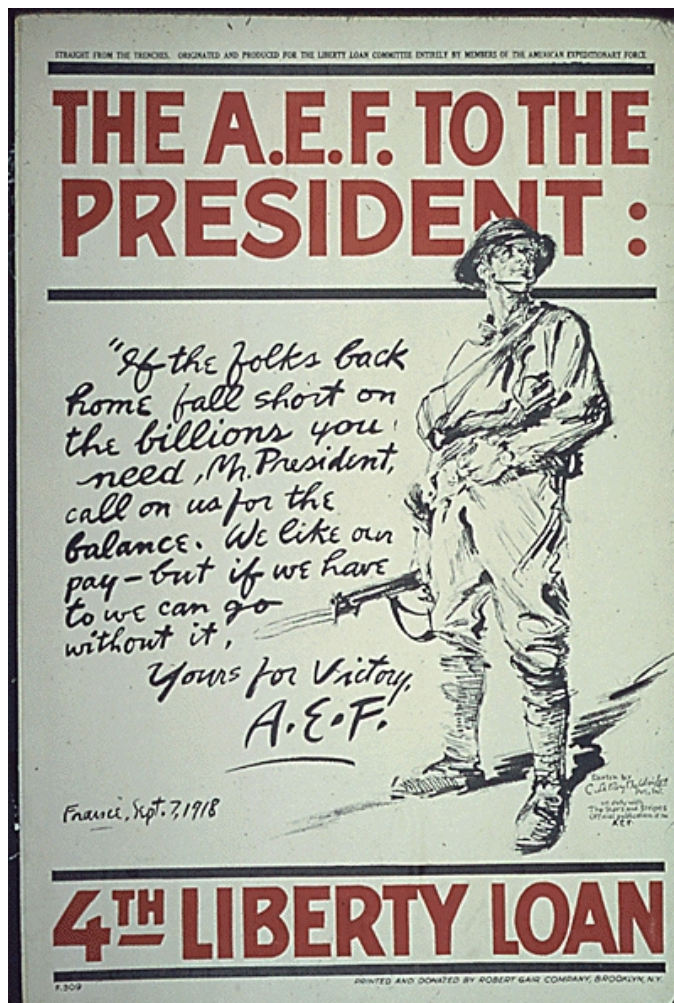 STRAIGHT FROM THE TRENCHES. ORIGINATED AND PRODUCED FOR THE LIBERTY LOAN COMMITTEE ENTIRELY BY MEMBERS OF THE AMERICAN EXPEDITIONARY FORCE
THE A.E.F. TO THE
PRESIDENT :
"If the folks back
home fall short on
the billions you
need, Mr. President,
call on us for the
balance. We like our
pay – but if we have
to we can go
without it,
Yours for Victory,
A.E.F.
France, Sept. 7, 1918
Sketch by
C. LeRoy Baldridge
Pvt., Inf.
on duty with
The Stars and Stripes
Official publication of the
A.E.F.
4TH LIBERTY LOAN
F.309
PRINTED AND DONATED BY ROBERT GAIR COMPANY, BROOKLYN, N.Y.